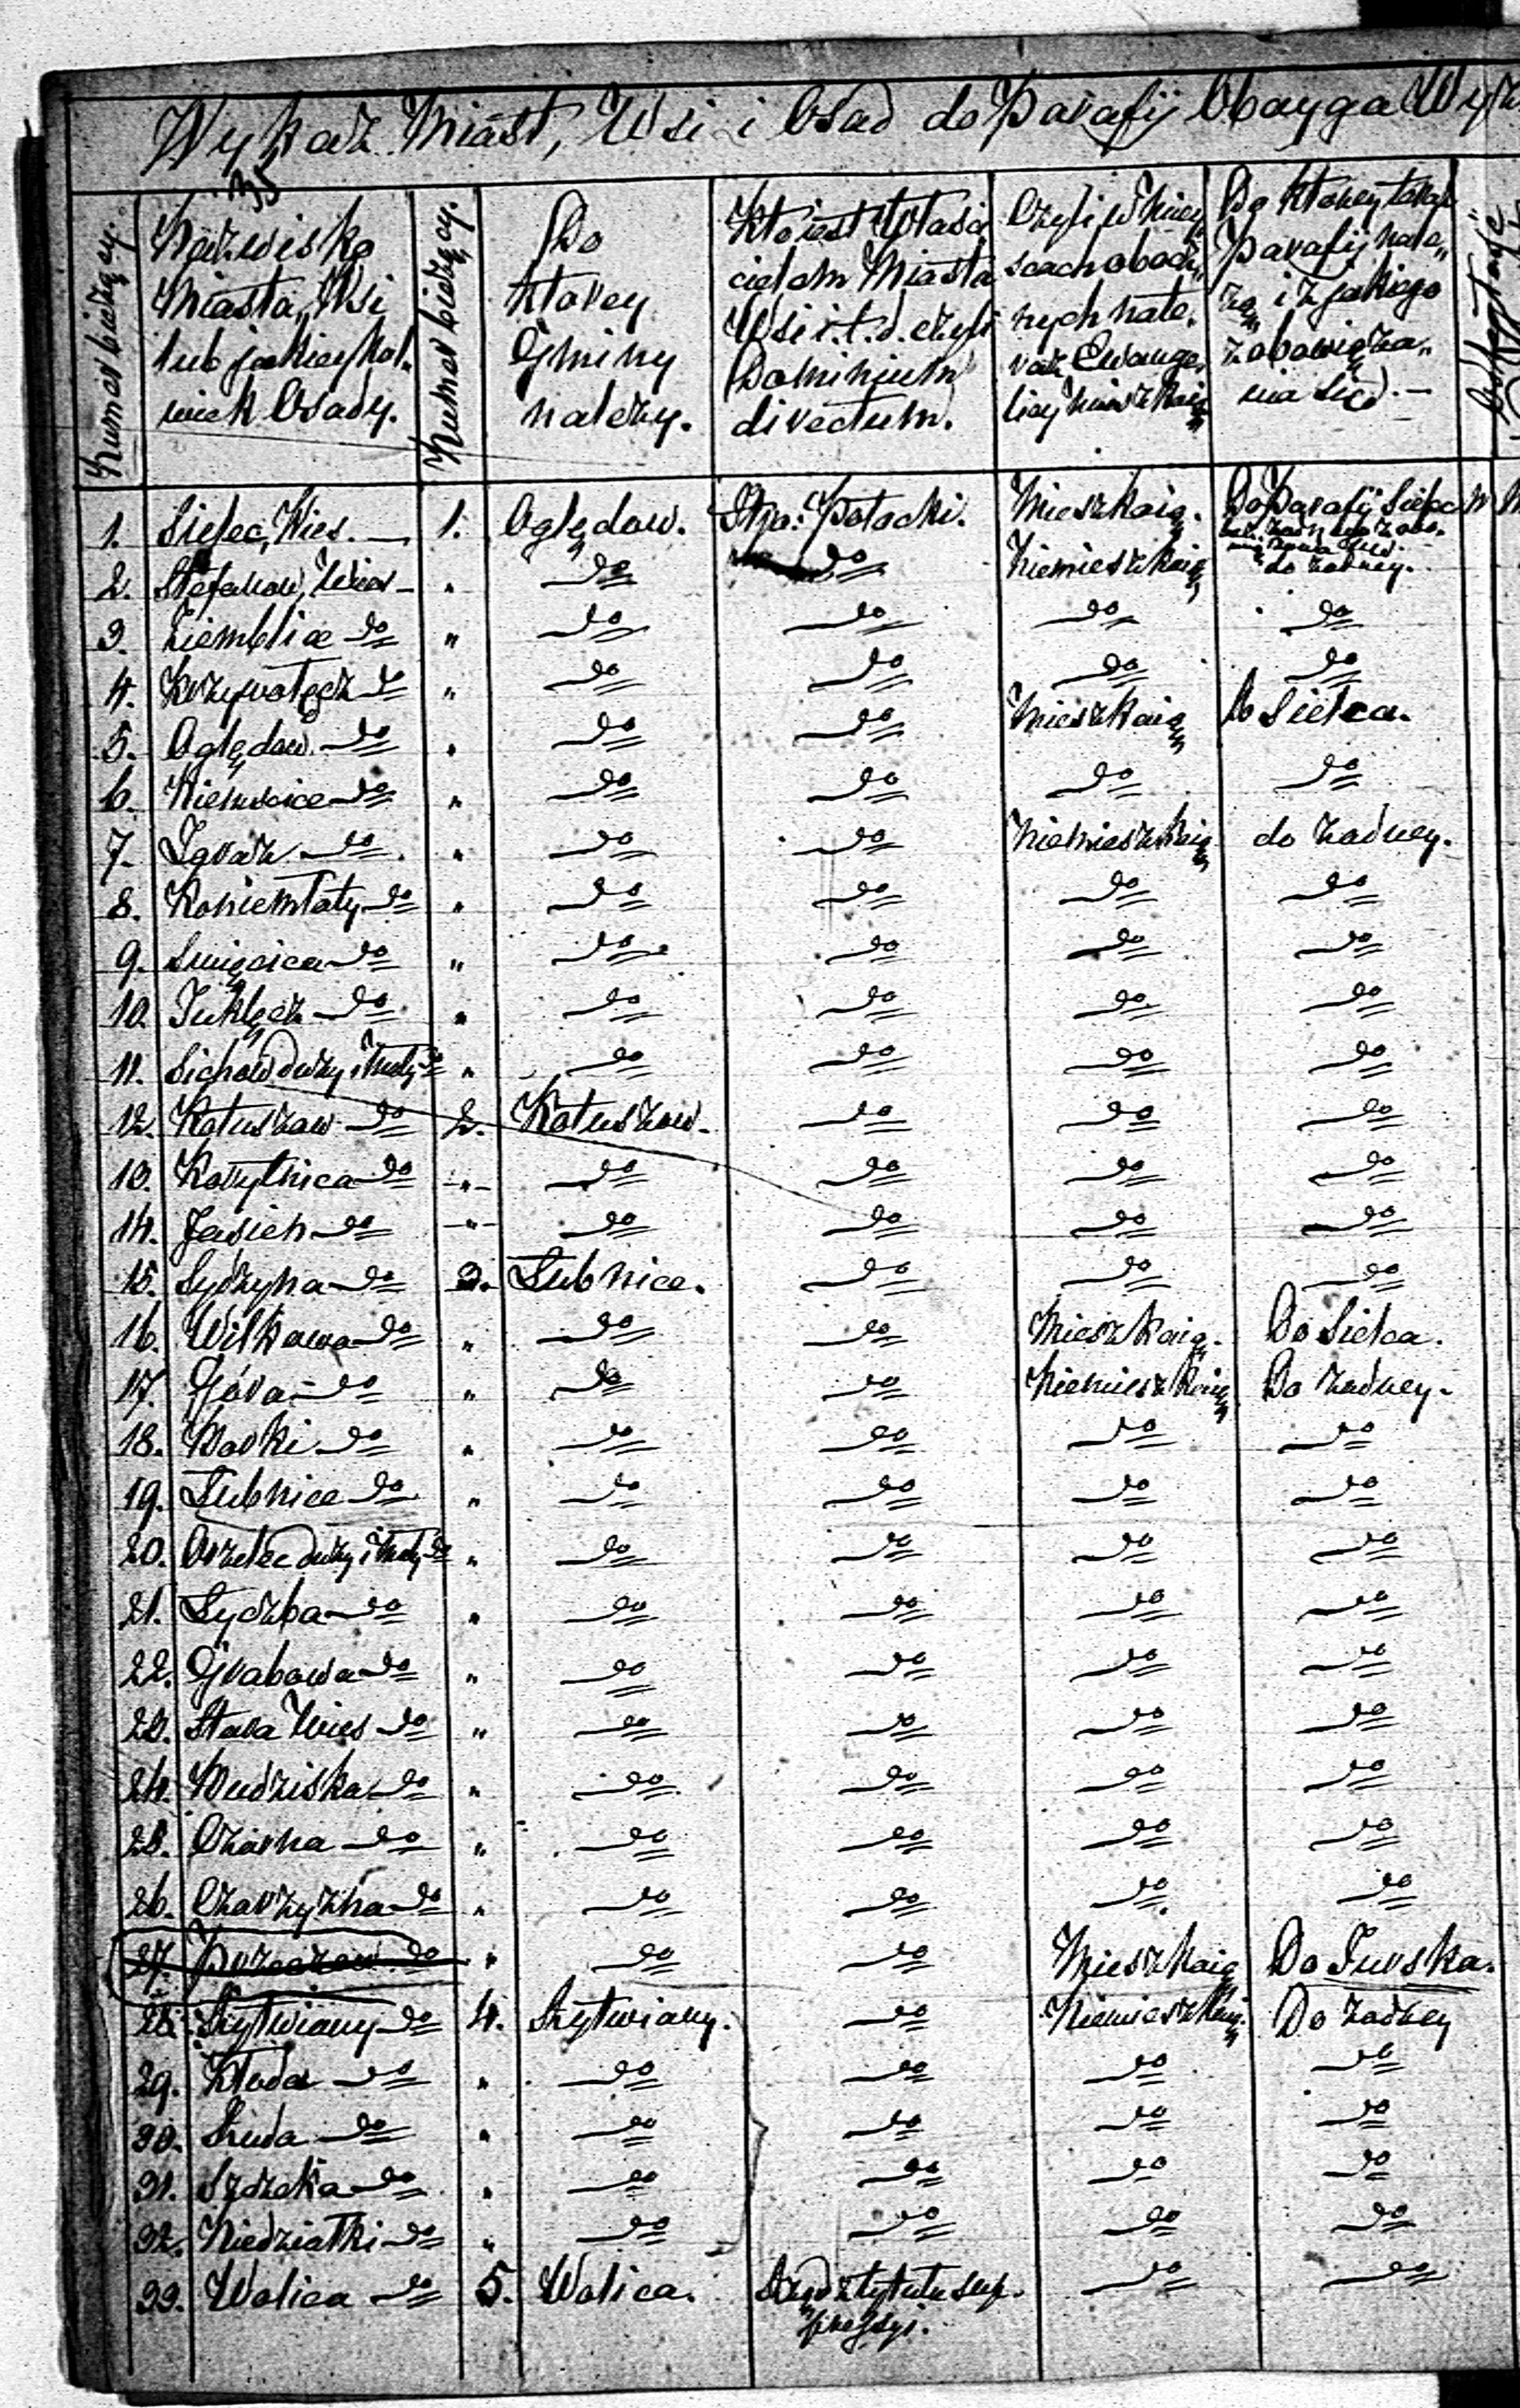 Wykaz Miast, Wsi i Osad do Parafij Obcyga
35
Numer bieżący.
Nazwisko
Miasta, Wsi
lub jakieykol„
wiek Osady.
Numer bieżący.
Do
ktorey
Gminy
należy.
Kto iest Własci
cielem Miasta
Wsi i.t.d. czyli
Dominium
directum.
Czyli w
scach obocz„
nych nale.
raz Ewange„
licy mieszkaią
Do ktorey teraz
Parafij nale„
żą i z jakiego
zobowiąza„
nia się.—
1. Sielec, Wies. — 1. Oględow. Potocki. Mieszkaią. Do Parafij Sielec
2. Stefanow, Wies — " do do Niemieszkaią do żadney.
3. Ziemblice do " do do do do
4. Krzywołęcz do " do do do do
5. Oględow. do " do do Mieszkaią Do Sielca.
6. do " do do do do
7. do " do do Niemieszkaią do żadney.
8. Koniemłoty do " do do do do
9. Smięcica do " do do do do
10. Tuklęcz do " do do do do
11. Sichow duży i Mały do " do do do do
12. Kotuszow do 2. Kotuszow. do do do
13. Korytnica do " do do do do
14. Jasień do " do do do do
15. Sydzyna do 3. Łubnice. do do do
16. Wilkowa do " do do Mieszkaią. Do Sielca.
17. Góra do " do do Niemieszkaią Do żadney.
18. Borki do " do do do do
19. Łubnice do " do do do do
20. Orzelec duży i Mały do " do do do do
21. Łyczba do " do do do do
22. Grabowa do " do do do do
23. Stara Wies do " do do do do
24. Budziska do " do do do do
25. Czarna do " do do do do
26. Czarzyzna do " do do do do
27. Przeczow do " do do Mieszkaią Do Turska.
28. Rytwiany do 4. Rytwiany. do Niemieszkaią. Do żadney
29. Kłoda do " do do do do
30. Ruda do " do do do do
31. Szczeka do " do do do do
32. Niedziałki do " do do do do
33. Wolica do 5. Wolica. do do